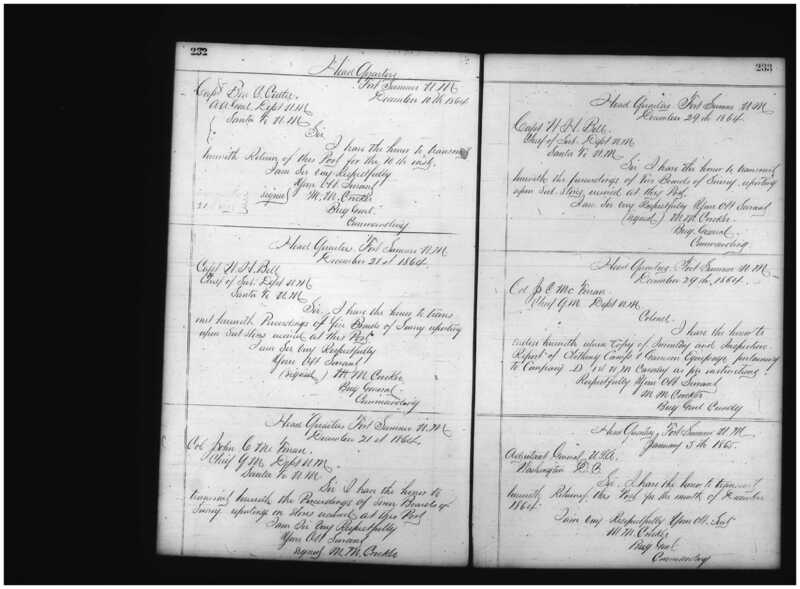 232
Head Quarters
Fort Sumner N.M.
December 10th 1864
Capt Ben C. Cutler.
A.A. Genl. Dept N.M.
Santa Fe N.M.
Sir
I have the honor to transmit
herewith Return of this Post for the 10th inst.
I am Sir very Respectfully
Your Obt Servant
signed M. M. Crocker
Brig Genl.
Commanding
Head Quarters Fort Sumner N.M.
December 21st 1864.
Capt W. H. Bell
Chief of Sub. Dept N.M.
Santa Fe N.M.
Sir, I have the honor to trans
mit herewith Proceedings of Boards of Survey reporting
upon Sub stores received at this Post
I am Sir very Respectfully
Your Obt Servant
(signed) M. M. Crocker
Brig General
Commanding
Head Quarters Fort Sumner N.M.
December 21st 1864.
Col John C. Mc Ferran
Chief Q M. Dept N.M.
Santa Fe N.M.
Sir I have the honor to
transmit herewith the Proceedings of Boards of
Survey reporting on stores received at this Post
I am Sir very Respectfully
Your Obt Servant
signed M. M. Crocker
233
Head Quarters Fort Sumner N.M.
December 29th 1864.
Capt W. H. Bell.
Chief of Sub. Dept N.M.
Santa Fe N.M.
Sir I have the honor to transmit
herewith the proceedings of Boards of Survey reporting
upon Sub. Stores received at this Post.
I am Sir very Respectfully Your Obt Servant
(signed) M. M. Crocker.
Brig. General.
Commanding
Head Quarters Fort Sumner N.M.
December 29th, 1864.
Col J. C. Mc Ferran
Chief Q.M. Dept N.M.
Colonel.
I have the honor to
herewith Copy of Inventory and Inspection
Report of Clothing Camp & Garrison Equipage pertaining
to Company D, 1st N M Cavalry as per instructions
Respectfully Your Obt Servant
M M Crocker
Brig Genl Comdg
Head Quarters Fort Sumner N.M.
January 5th 1865.
Adjutant General U.S.A.
Washington D.C.
Sir I have the honor to transmit
herewith Return of this Post for the month of December
1864.
I am very Respectfully Your Obt. Servt
M. M. Crocker
Brig Genl
Commanding